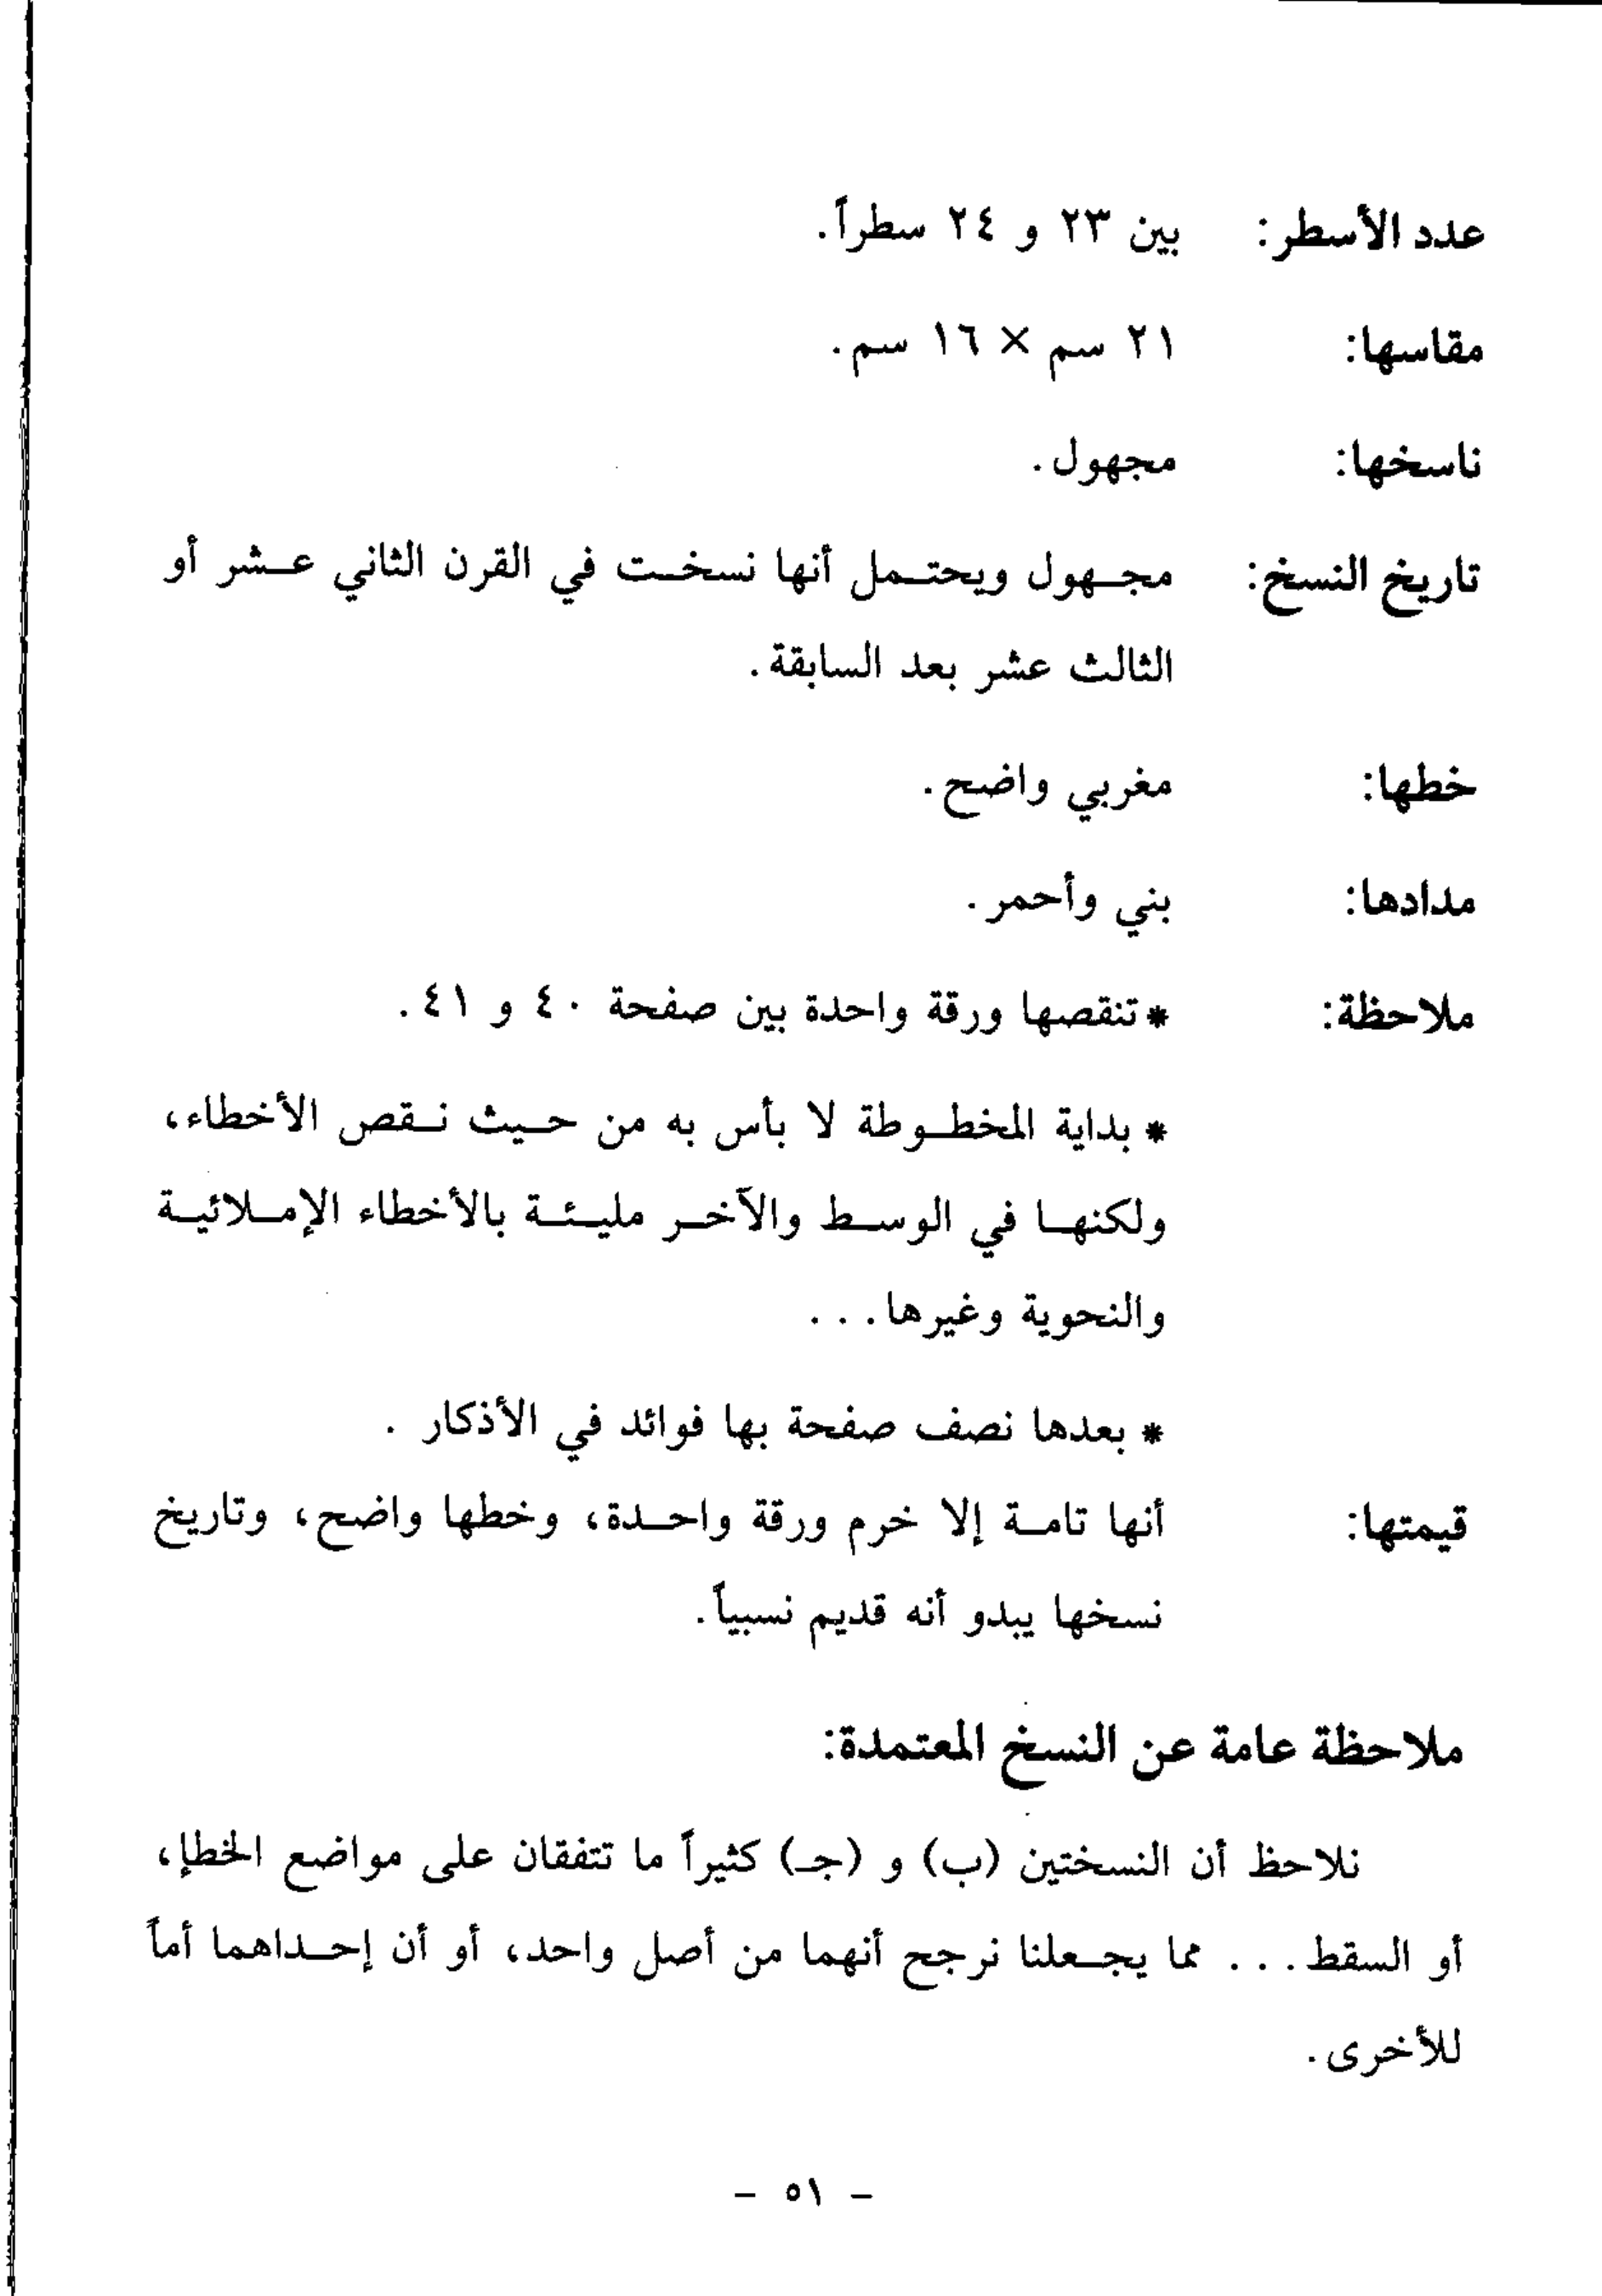 عدد الأسطر: بين ٢٣ و ٢٤ سطراً.
مقاسها: ٢١ سم × ١٦ سم.
ناسخها: مجهول.
تاريخ النسخ: مجهول ويحتمل أنها نسخت في القرن الثاني عشر أو
الثالث عشر بعد السابقة.
خطها: مغربي واضح.
مدادها: بني وأحمر.
ملاحظة: * تنقصها ورقة واحدة بين صفحة ٤٠ و ٤١.
* بداية المخطوطة لا بأس به من حيث نقص الأخطاء،
ولكنها في الوسط والآخر مليئة بالأخطاء الإملائية
والنحوية وغيرها...
* بعدها نصف صفحة بها فوائد في الأذكار .
قيمتها: أنها تامة إلا خرم ورقة واحدة، وخطها واضح، وتاريخ
نسخها يبدو أنه قديم نسبياً.
ملاحظة عامة عن النسخ المعتمدة:
نلاحظ أن النسختين (ب) و (جـ) كثيراً ما تتفقان على مواضع الخطإ،
أو السقط... مما يجعلنا نرجح أنهما من أصل واحد، أو أن إحداهما أماً
للأخرى.
- ٥١ -